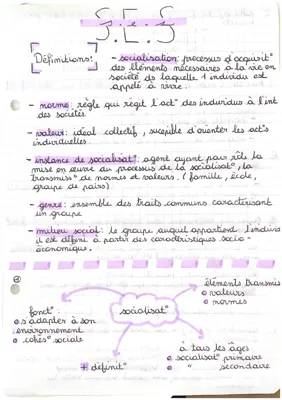 S.E.S
Définitions:
- socialisation: processus d'acquisit°
des éléments nécessaires à la vie en
société ds laquelle 1 individu est
appelé à vivre.
- norme: règle qui régit l'act° des individus à l'int
des sociétés
- valeur: idéal collectif, suceptible d'orienter les act°s
individuelles
- instance de socialisat°: agent ayant pour rôle la
mise en œuvre du processus de la socialisat°, la
transmiss° de normes et valeurs. (famille, école,
groupe de pairs)
- genre: ensemble des traits communs caractérisant
un groupe
- milieu social: le groupe auquel appartient l'individu
il est défini à partir des caractéristiques socio-
économique.
éléments transmis
valeurs
normes
fonct°
s'adapter à son
environnement
cohés° sociale
socialisat°
+ définit°
à tous les âges
socialisat° primaire
" secondaire